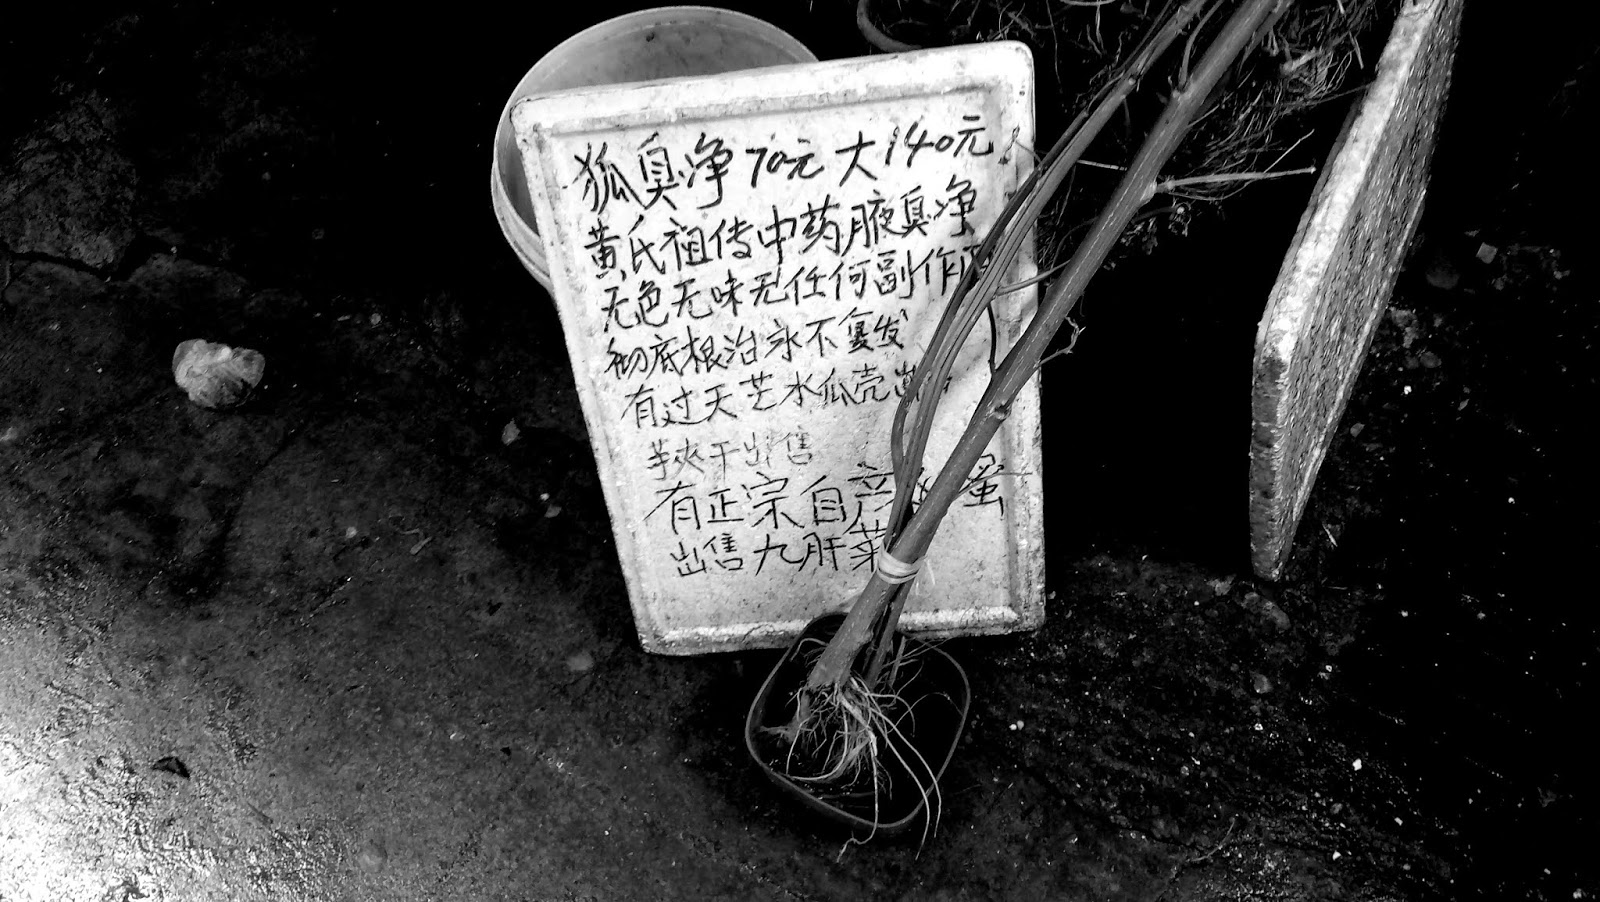 狐臭净70元大140元
黄氏祖传中药腋臭净
无色无味无任何副作用
彻底根治永不复发
有过天芒水瓜壳出
芋夹干出售
有正宗自产 蜜
出售九肝菜